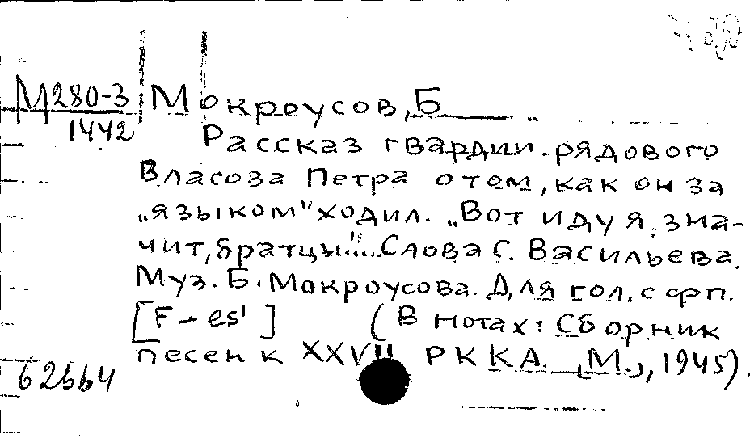 М280-3 Мокроусов, Б
1442
Рассказ гвардии рядового
Власова Петра о тем, как он за
„языком" ходил. „Вот иду я, зна-
чит, братцы"... Слова С. Васильева.
Муз. Б. Мокроусова. Для гол. с фп.
[F - es¹] (В нотах: Сборник
песен к XXVII РККА. [М.], 1945).